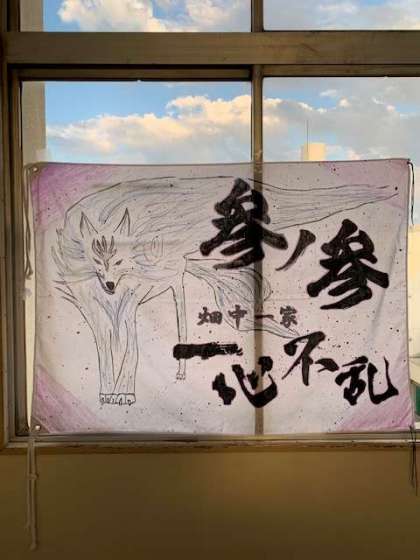 参ノ参
畑中一家
一心不乱